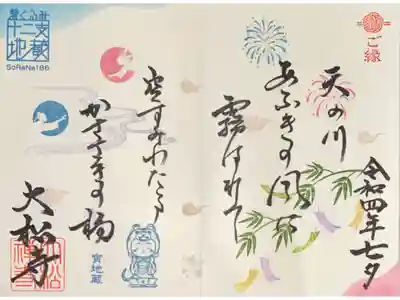 ご縁
令和四年七夕
天の川
あふきの風に
霧はれて
空すみわたる
かささきの橋
大松寺
寅地蔵
十二支
地蔵